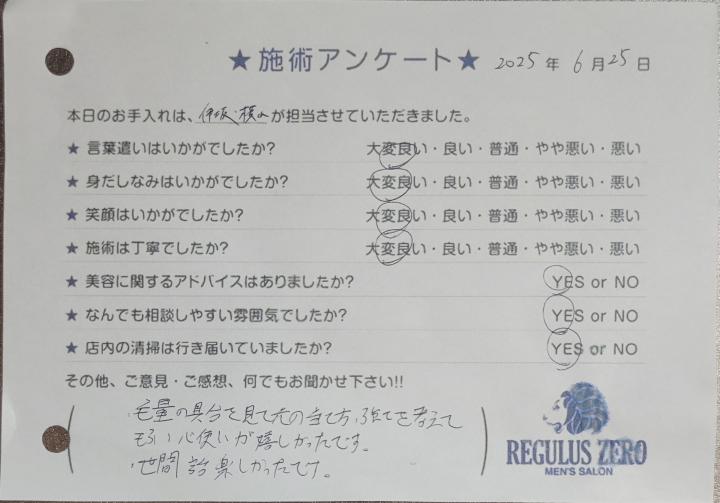 ★施術アンケート★ 2025年 6月25日
本日のお手入れは、が担当させていただきました。
★ 言葉遣いはいかがでしたか? 大変良い・良い・普通・やや悪い・悪い
★ 身だしなみはいかがでしたか? 大変良い・良い・普通・やや悪い・悪い
★ 笑顔はいかがでしたか? 大変良い・良い・普通・やや悪い・悪い
★ 施術は丁寧でしたか? 大変良い・良い・普通・やや悪い・悪い
★ 美容に関するアドバイスはありましたか? YES or NO
★ なんでも相談しやすい雰囲気でしたか? YES or NO
★ 店内の清掃は行き届いていましたか? YES or NO
その他、ご意見・ご感想、何でもお聞かせ下さい!!
毛量の具合を見て刃の当て方、を考えて
もらい心使いが嬉しかったです。
・世間話楽しかったです。
REGULUS ZERO
MEN'S SALON